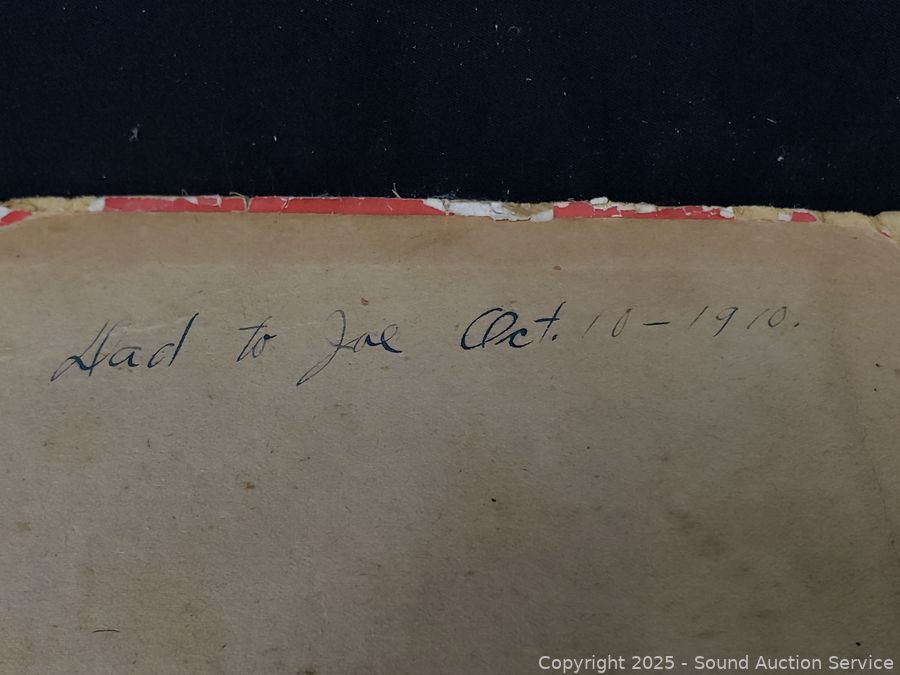 Dad to Joe Oct. 10 - 1910.
Copyright 2025 - Sound Auction Service